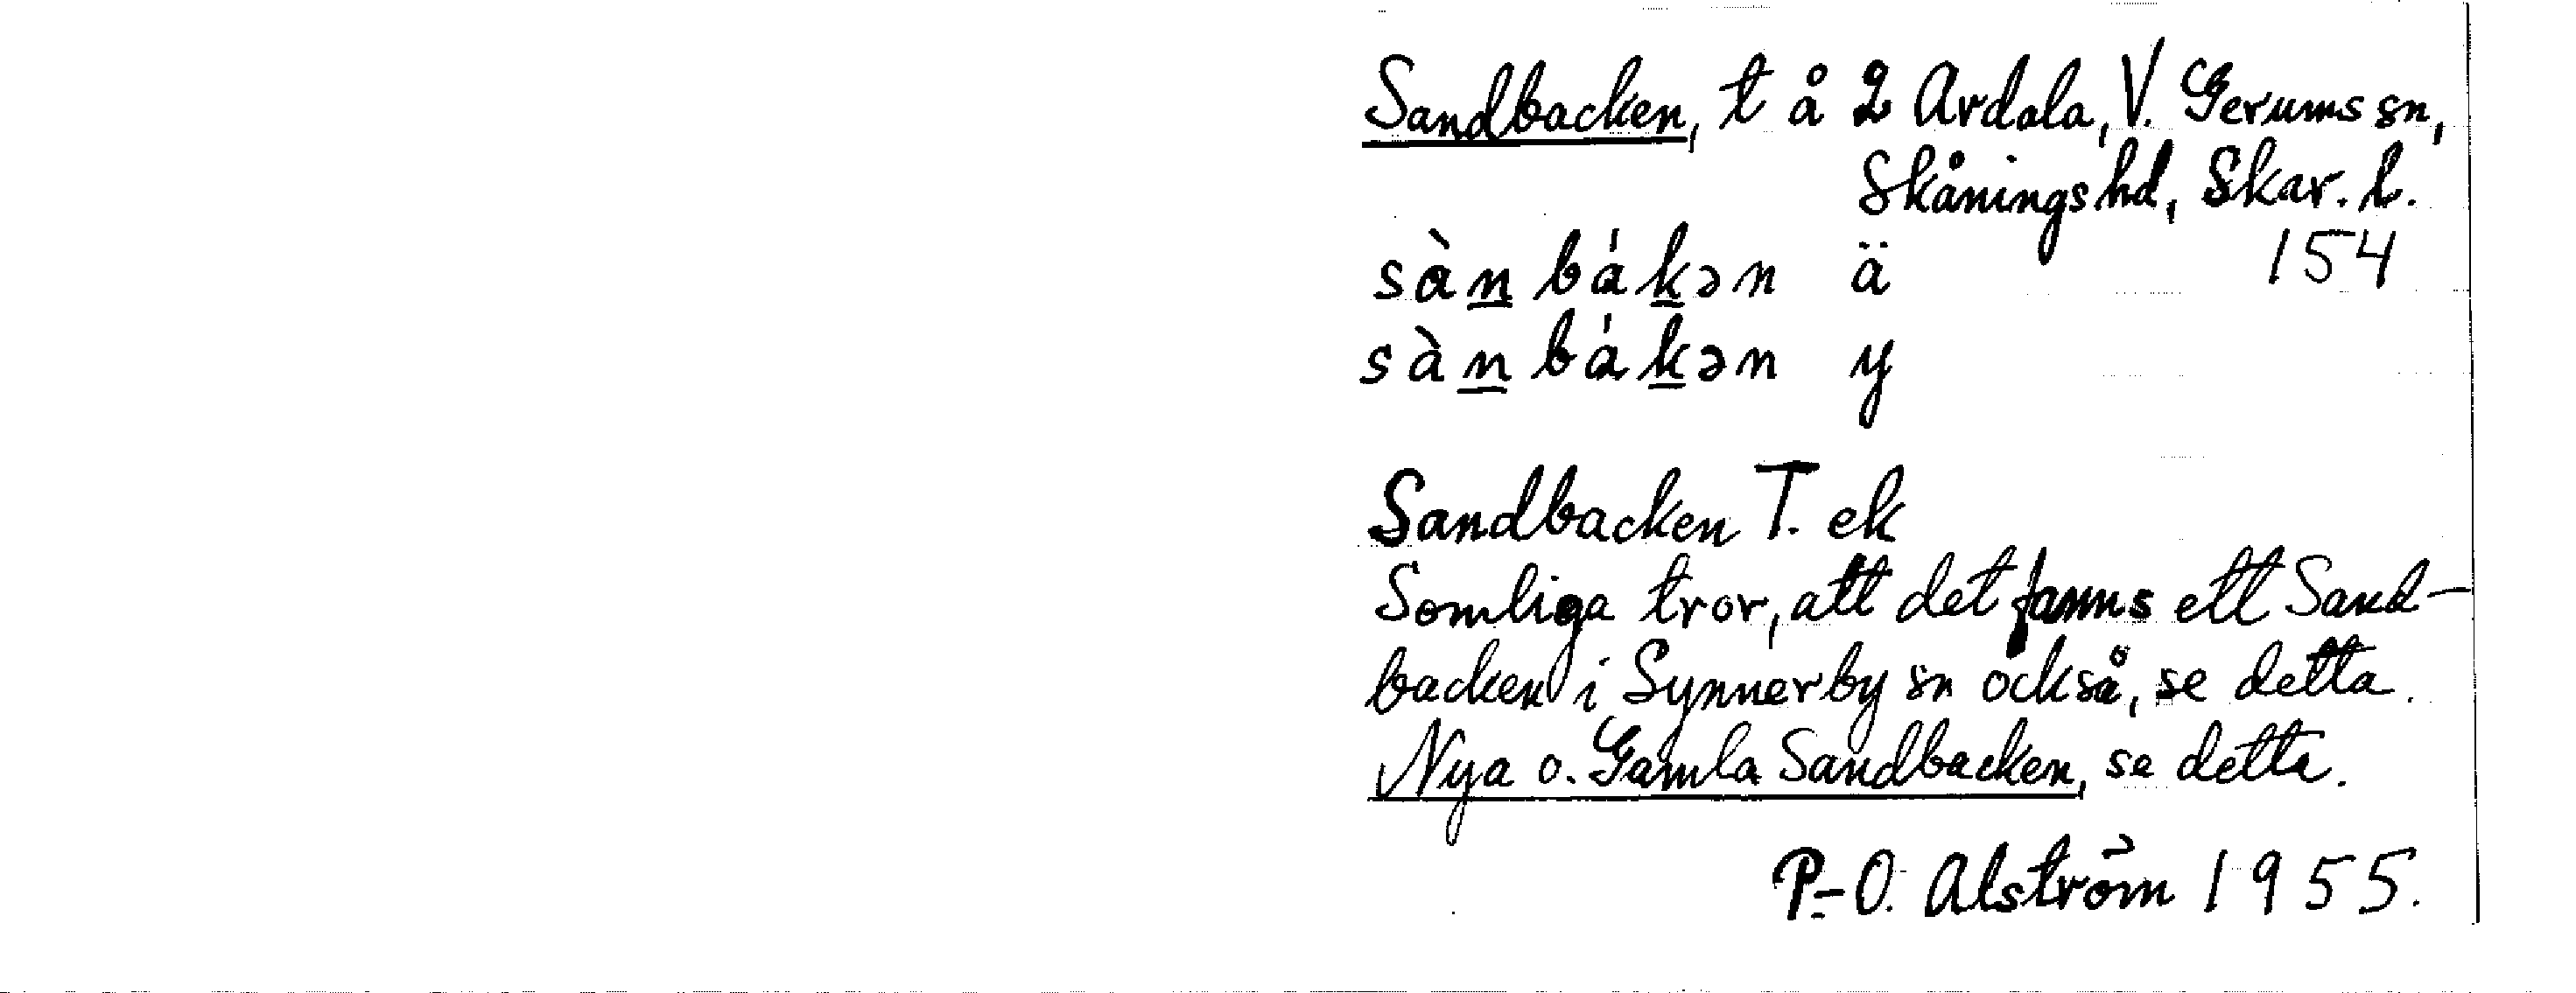 Sandbacken, t å 2 Ardala, V. Gerums sn,
Skånings hd, Skar. l.
sàn bákən ä 154
sàn bákən y
Sandbacken T. ek
Somliga tror, att det fanns ett Sand-
backen i Synnerby sn också, se detta.
Nya o. Gamla Sandbacken, se detta.
P.-O. Alström 1955.